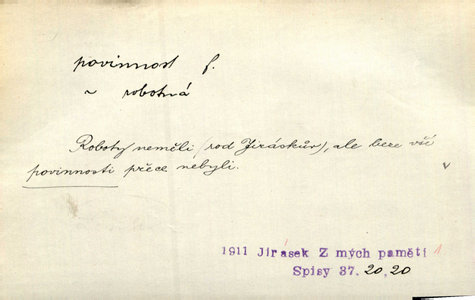 povinnost f.
~ robotná
Roboty neměli (rod Jiráskův), ale beze vší
povinnosti přece nebyli.
v
1911 Jirásek Z mých pamětí 1
Spisy 37. 20, 20